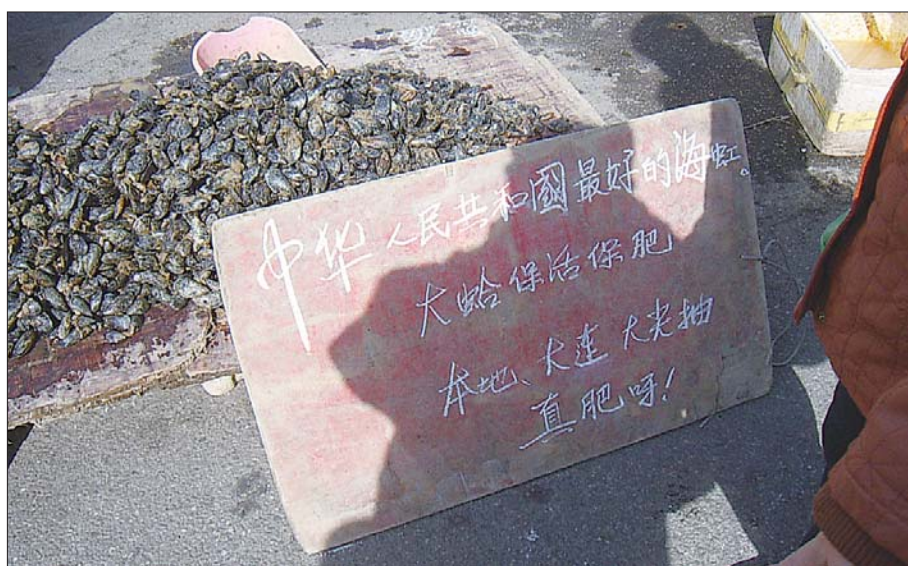 中华人民共和國最好的海虹。
大蛤保活保肥
本地、大连大尖抽
真肥呀！